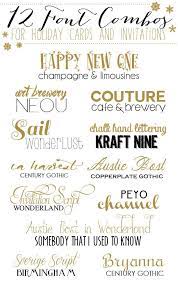 12 Font Combos
FOR HOLIDAY CARDS AND INVITATIONS
HAPPY NEW ONE
champagne & limousines
art brewery
NEOU
COUTURE
cafe & brewery
Sail
WONDERLUST
chalk hand lettering
KRAFT NINE
CENTURY GOTHIC
Austie Bost
COPPERPLATE GOTHIC
Invitation Script
WONDERLAND
PEYO
channel
Austie Bost in Wonderland
SOMEBODY THAT I USED TO KNOW
George Script
BIRMINGHAM
Bryanna
CENTURY GOTHIC